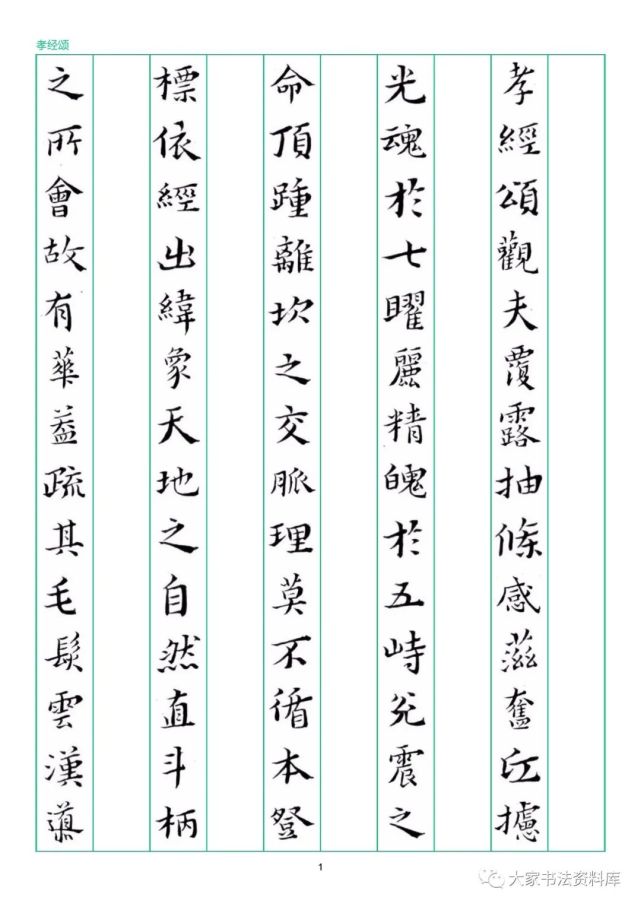 孝经颂
孝經頌觀夫覆露抽條感滋奮丘攄
光魂於七曜麗精魄於五峙兌震之
命頂踵離坎之交脈理莫不循本登
標依經出緯象天地之自然直斗柄
之所會故有華蓋疏其毛髮雲漢導
1
大家书法资料库